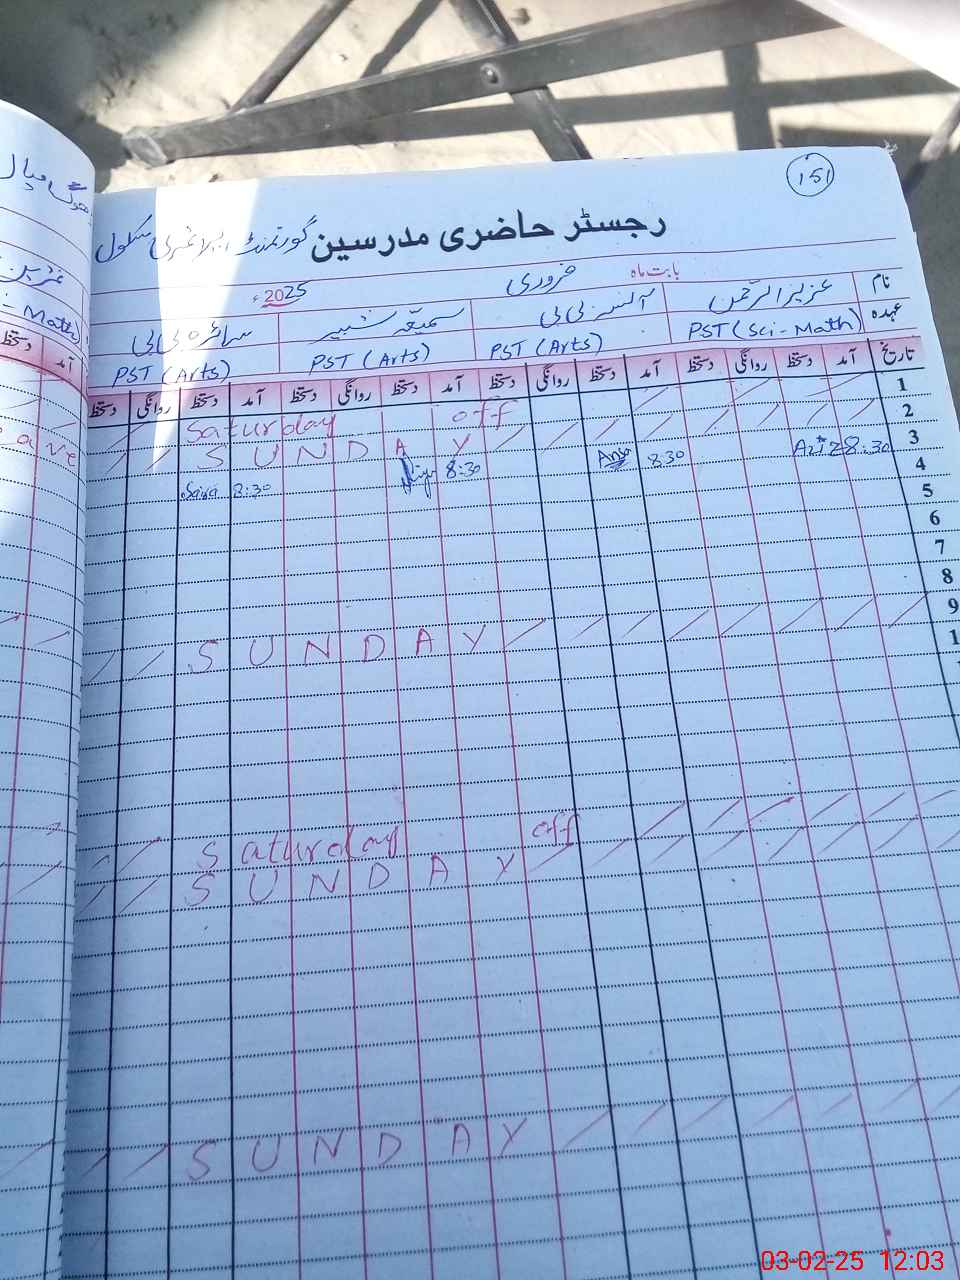 151
رجسٹر حاضری مدرسین گورنمنٹ پرائمری سکول
بابت ماہ فروری 2025ء
نام عزیز الرحمٰن سمیعہ شبیر سائرہ بی بی
عہدہ PST (Sci-Math) PST (Arts) PST (Arts) PST (Arts)
تاریخ آمد دستخط روانگی دستخط آمد دستخط روانگی دستخط آمد دستخط روانگی دستخط آمد دستخط روانگی دستخط
1 Saturday off
2 SUNDAY
3 8:30 Aziz 8:30 8:30 8:30 Saira
4
5
6
7
8
9 SUNDAY
Saturday off
SUNDAY
SUNDAY
- Math)
آمد دستخط
03-02-25 12:03